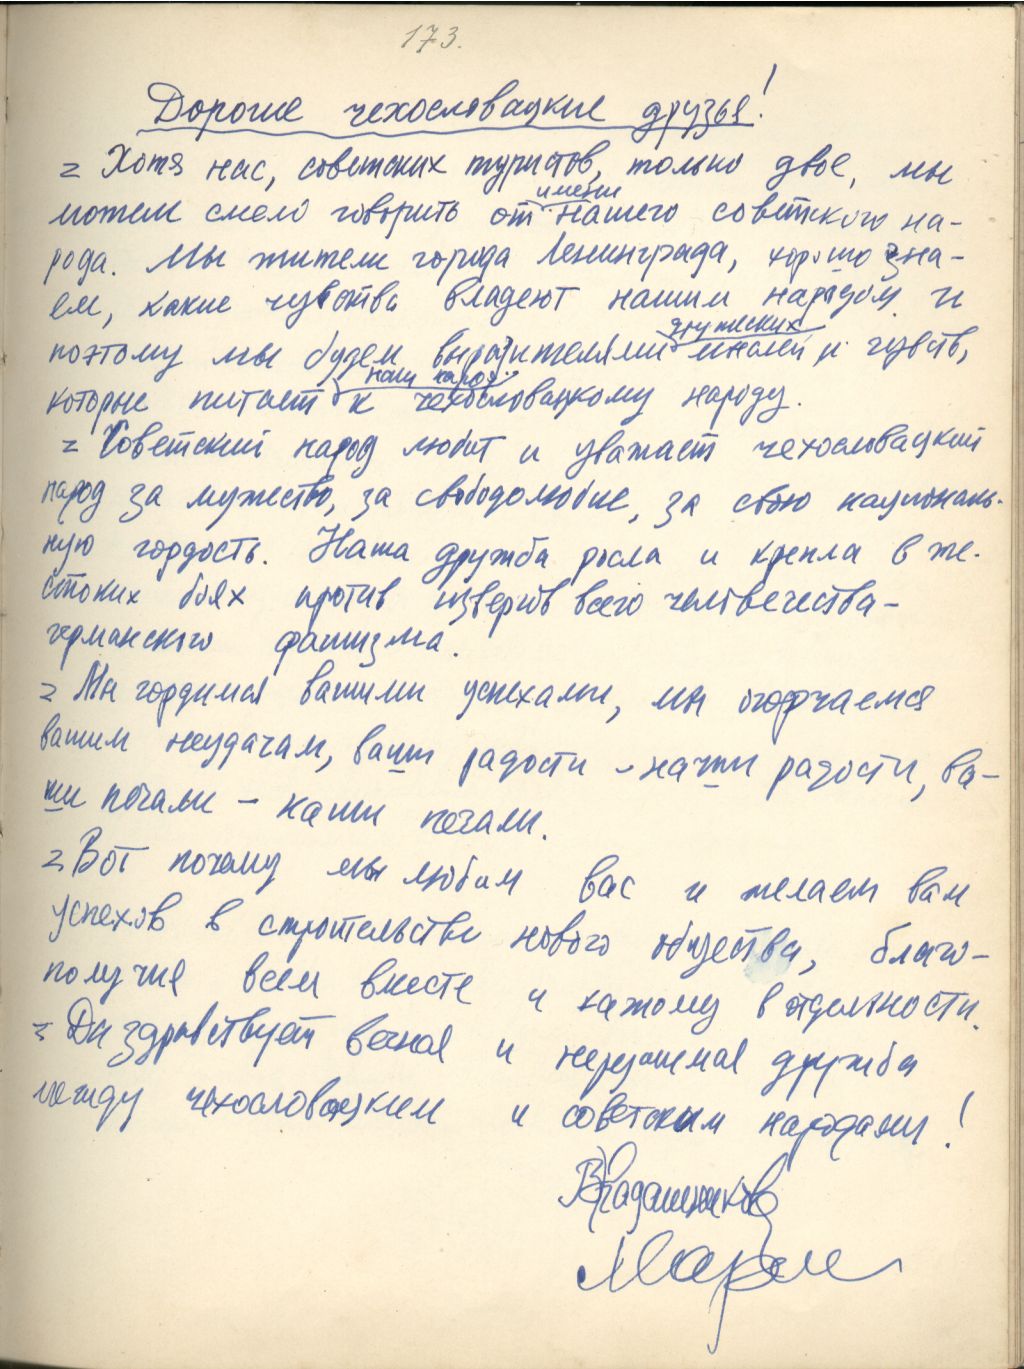 173.
Дорогие чехословацкие друзья!
= Хотя нас, советских туристов, только двое, мы
можем смело говорить от имени нашего советского на-
рода. Мы жители города Ленинграда, хорошо зна-
ем, какие чувства владеют нашим народом и
поэтому мы будем выразителями дружеских и чувств,
которые питает наш народ к чехословацкому народу.
= Советский народ любит и уважает чехословацкий
народ за мужество, за свободолюбие, за свою националь-
ную гордость. Наша дружба росла и крепла в же-
стоких боях против извергов всего человечества –
германского фашизма.
= Мы гордимся вашими успехами, мы огорчаемся
вашим неудачам, ваши радости – наши радости, ва-
ши печали – наши печали.
= Вот почему мы любим вас и желаем вам
успехов в строительстве нового общества, благо-
получия всем вместе и каждому в отдельности.
= Да здравствует вечная и нерушимая дружба
между чехословацким и советским народами!